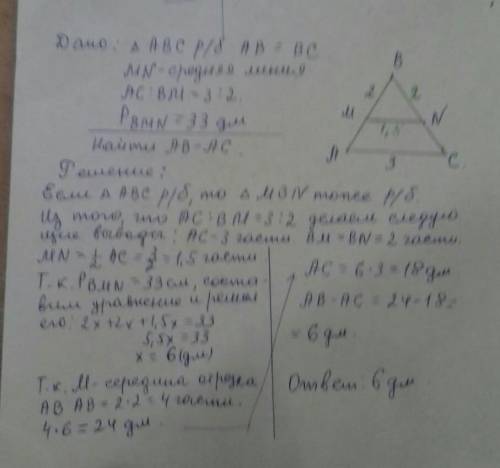 Дано: △ ABC р/б AB = BC
MN - средняя линия
AC : BM = 3 : 2.
P BMN = 33 дм
Найти AB - AC.
B
2
2
M
N
1,5
A
3
C
Решение:
Если △ ABC р/б, то △ MBN тоже р/б
Из того, что AC : BM = 3 : 2 делаем следую
щие выводы: AC = 3 части. BM = BN = 2 части.
MN = ½ AC = 3/2 = 1,5 части
Т.к. P BMN = 33 см, соста-
вим уравнение и решим
его: 2x + 2x + 1,5x = 33
5,5x = 33
x = 6 (дм)
Т.к. M - середина отрезка
AB AB = 2 · 2 = 4 части.
4 · 6 = 24 дм.
AC = 6 · 3 = 18 дм
AB - AC = 24 - 18 =
= 6 дм.
Ответ: 6 дм